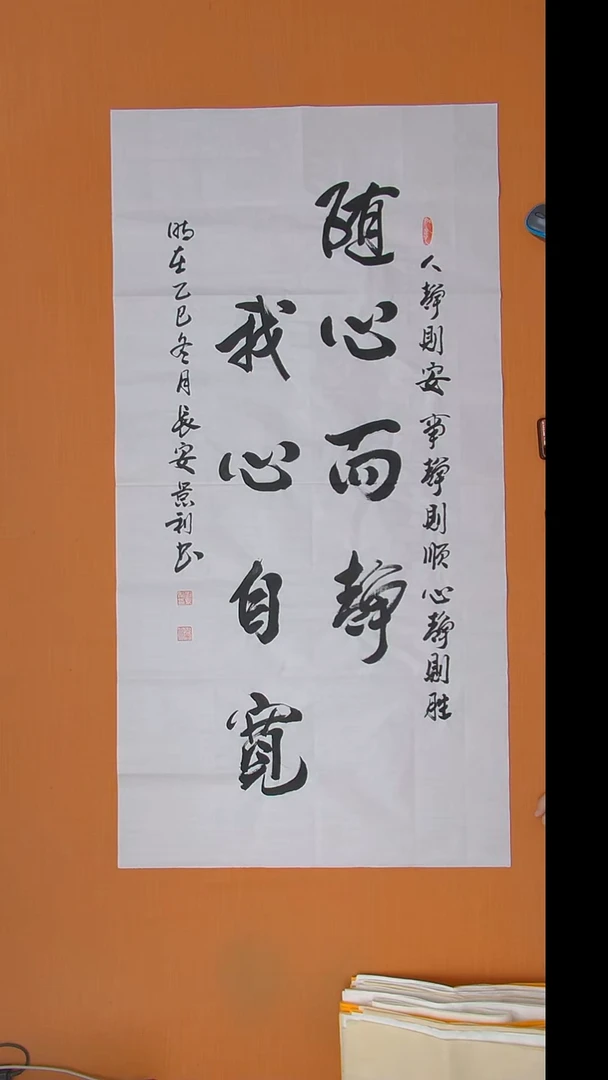 人静則安事静則順心静則胜
随心而静
我心自寬
時在乙巳冬月长安景利书